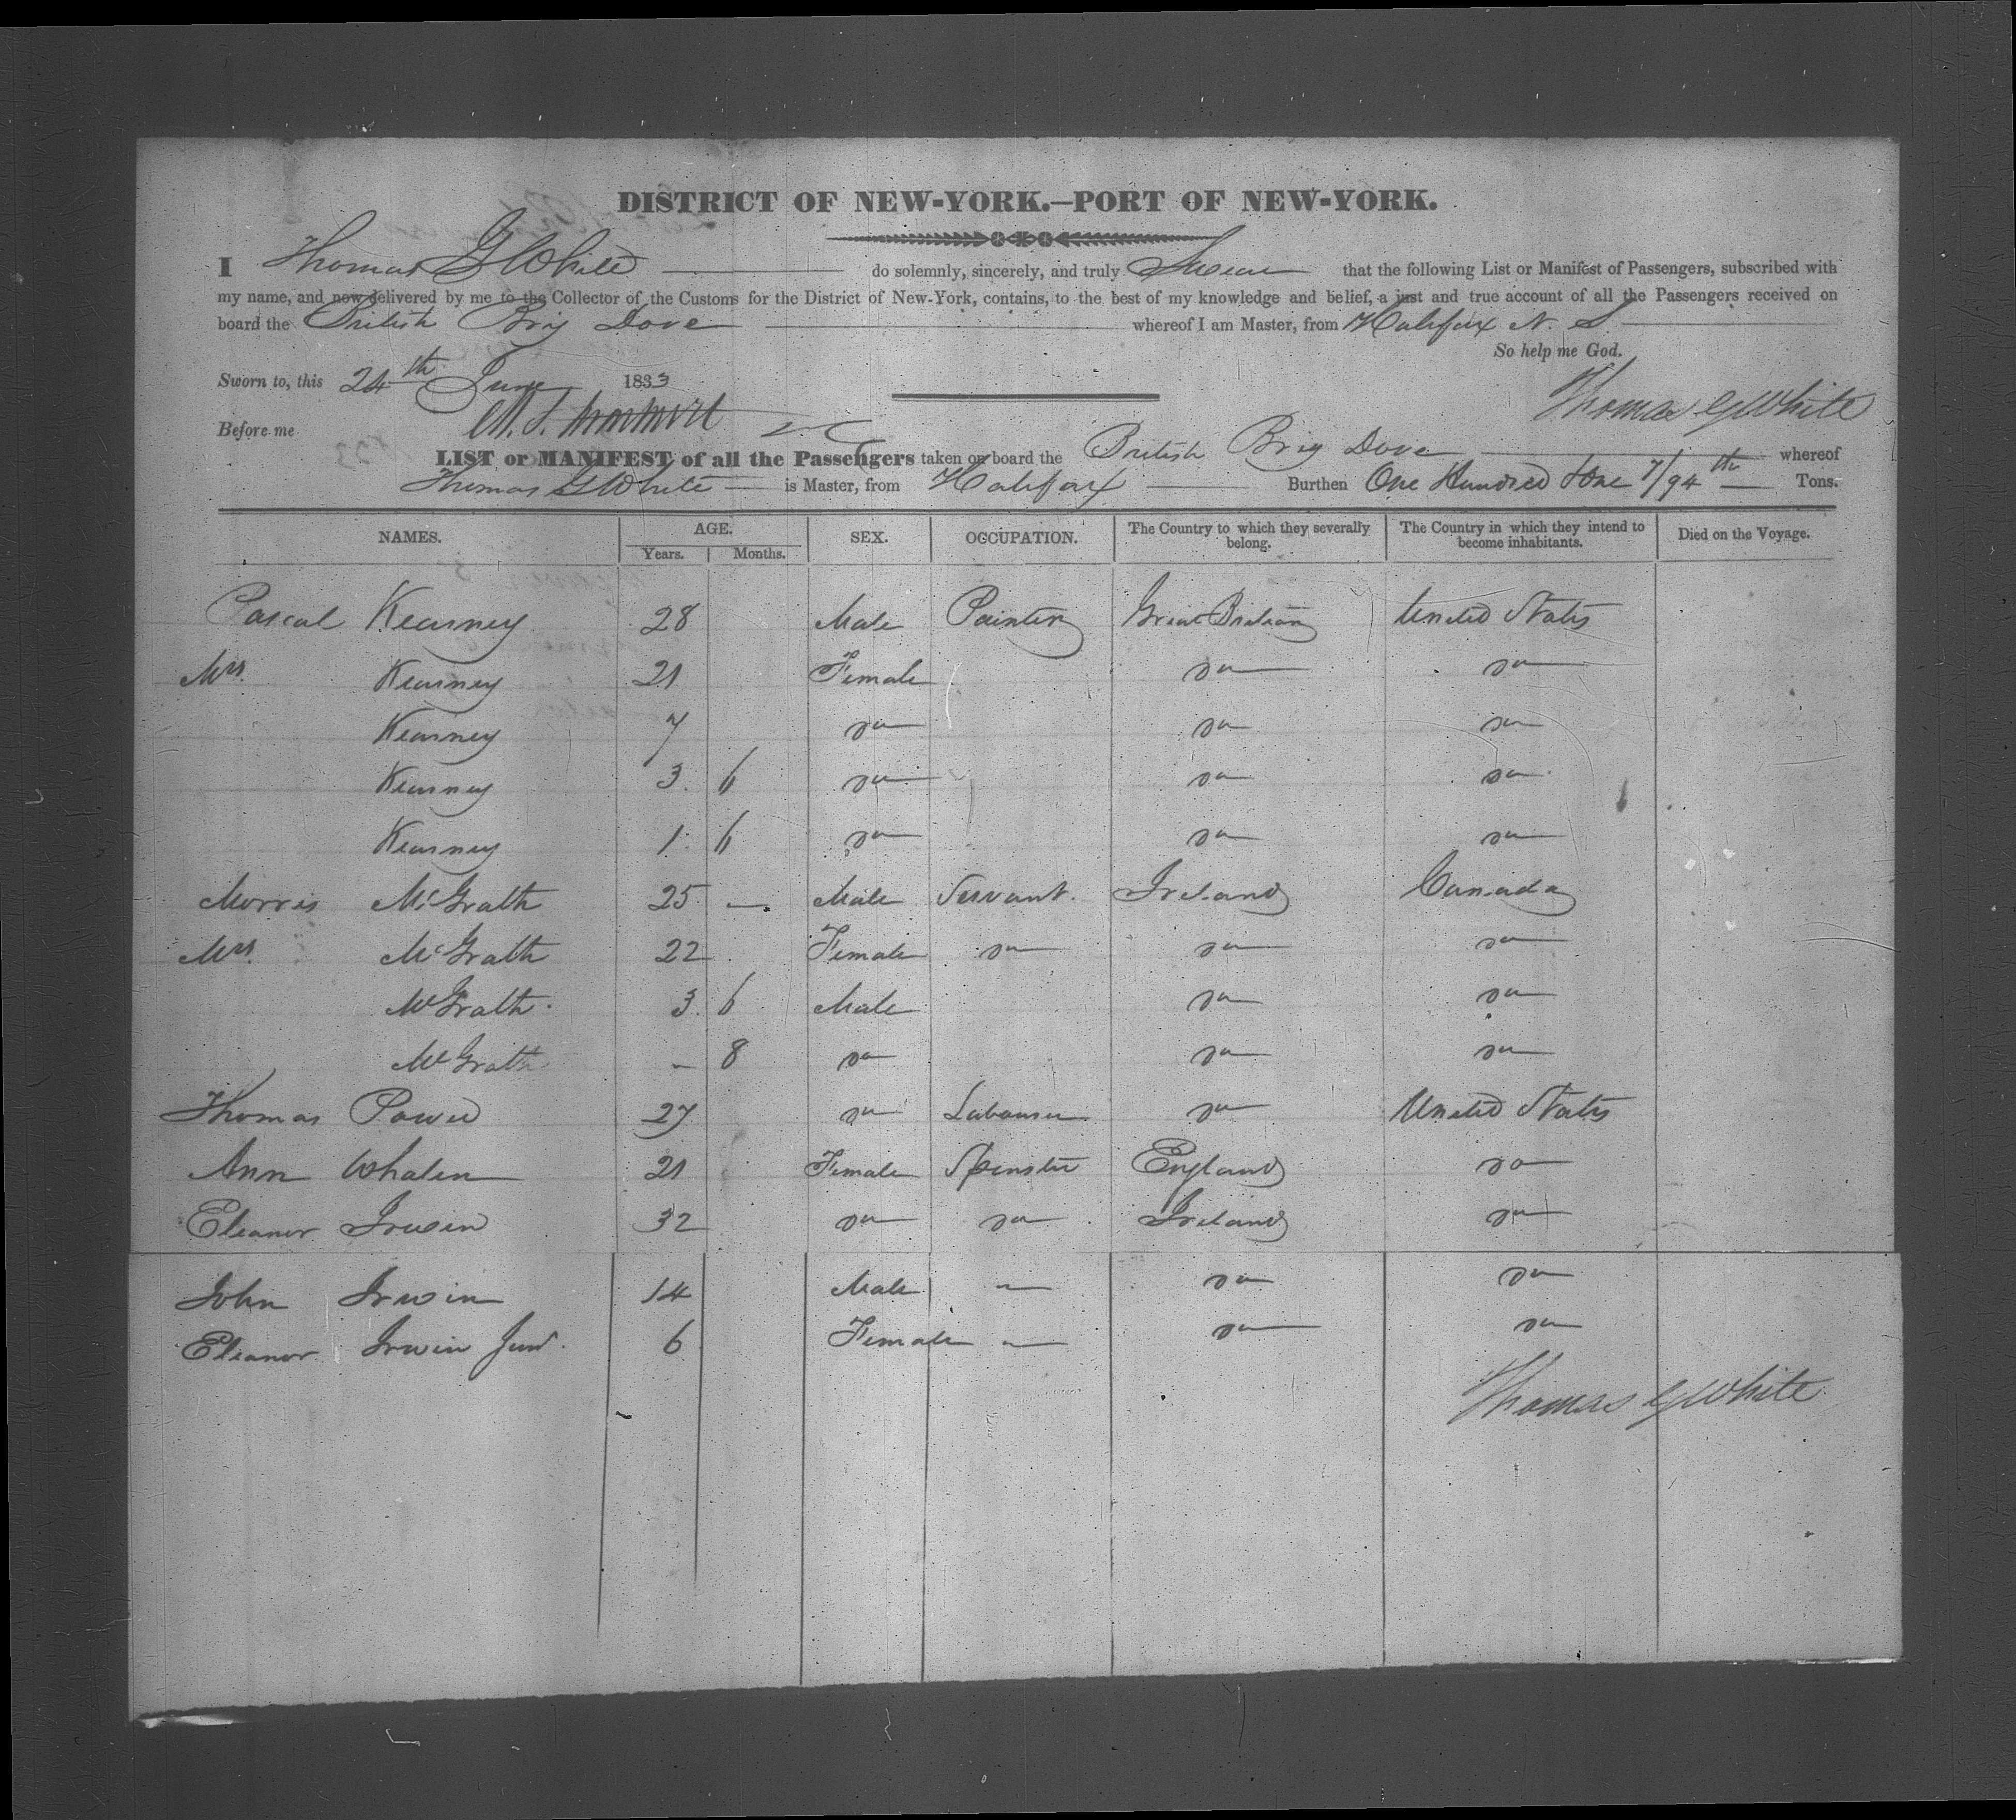 DISTRICT OF NEW-YORK.—PORT OF NEW-YORK.
I Thomas G White do solemnly, sincerely, and truly Swear that the following List or Manifest of Passengers, subscribed with
my name, and now delivered by me to the Collector of the Customs for the District of New-York, contains, to the best of my knowledge and belief, a just and true account of all the Passengers received on
board the British Brig Dove whereof I am Master, from Halifax N. S
So help me God.
Sworn to, this 24th June 1833
Thomas G White
Before me
LIST or MANIFEST of all the Passengers taken on board the British Brig Dove whereof
Thomas G White is Master, from Halifax Burthen One Hundred & One 7/94th Tons.
NAMES. AGE. SEX. OCCUPATION. The Country to which they severally belong. The Country in which they intend to become inhabitants. Died on the Voyage.
Years. Months.
Pascal Kearney 28 Male Painter Great Britain United States
Mrs. Kearney 21 Female do do
Kearney 7 do do do
Kearney 3 6 do do do
Kearney 1 6 do do do
Morris McGrath 25 — Male Servant. Ireland Canada
Mrs. McGrath 22 Female do do do
McGrath 3 6 Male do do
McGrath — 8 do do do
Thomas Power 27 do Labourer do United States
Ann Whalen 21 Female Spinster England do
Eleanor Irwin 32 do do Ireland do
John Irwin 14 Male — do do
Eleanor Irwin Junr. 6 Female — do do
Thomas G White